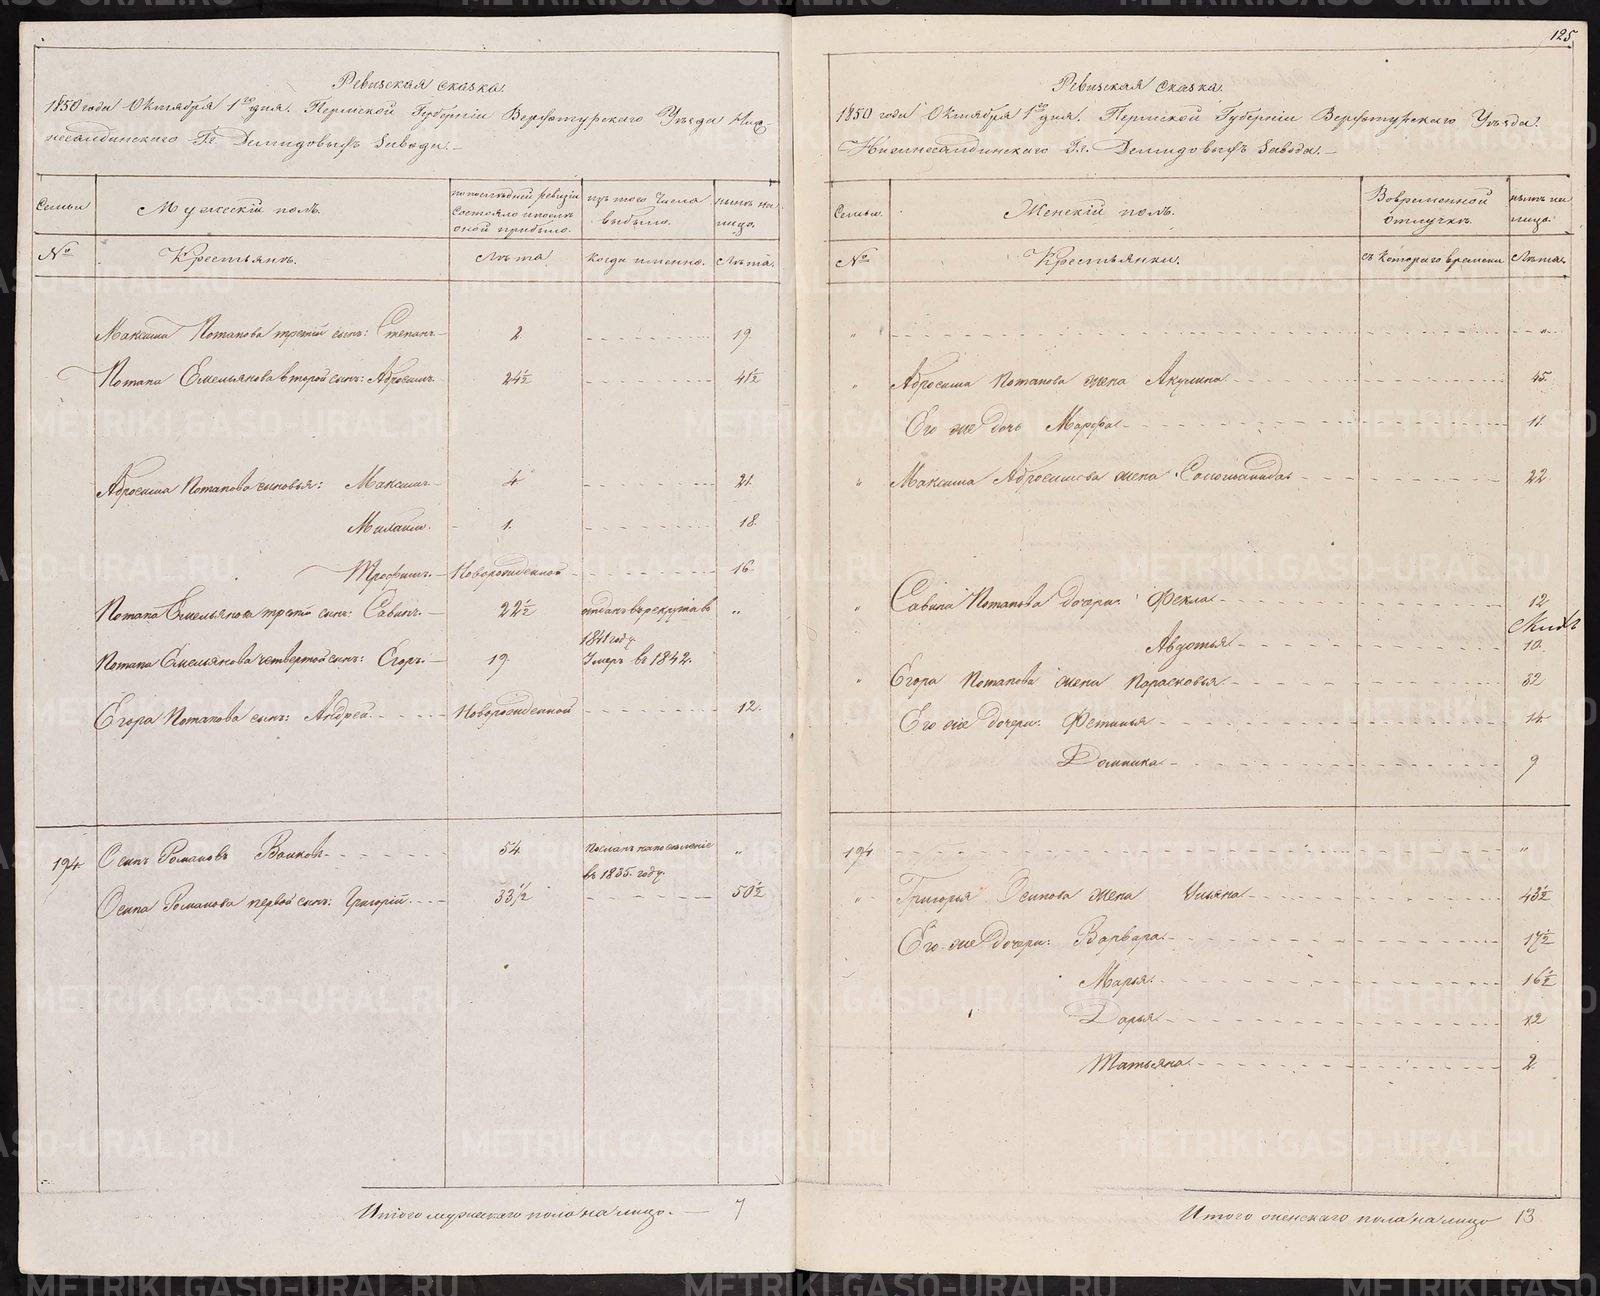 Ревизская сказка.
1850 года Октября 1го дня. Пермской Губернии Верхотурскаго Уѣзда Ниж-
несалдинскаго Гг. Демидовыхъ Завода.
Семьи
Мужескій полъ.
по последней ревизіи состояло и после оной прибыло.
изъ того числа выбыло.
нынѣ на лицо.
№
Крестьянъ.
Лѣта
когда именно.
Лѣта.
Максима Потапова третій сынъ: Степанъ 2 19
Потапа Емельянова второй сынъ: Абросимъ. 24½ 41½
Абросима Потапова сыновья: Максимъ 4 21
Михаилъ. 1. 18
Трофимъ. Новорожденной 16
Потапа Емельянова третій сынъ: Савинъ. 22½ отданъ в рекруты в 1841 году "
Потапа Емельянова четвертой сынъ: Егоръ. 19 Умеръ въ 1842.
Егора Потапова сынъ: Андрей. Новорожденной 12.
194 Осипъ Романовъ Волковъ 54 Посланъ на поселеніе въ 1835. году. "
Осипа Романова первой сынъ: Григорій. 33½ 50½
Итого мужескаго пола на лицо. 7
125
Ревизская сказка.
1850 года Октября 1го дня. Пермской Губерніи Верхотурскаго Уѣзда.
Нижнесалдинскаго Гг. Демидовыхъ Завода.
Семьи.
Женскій полъ.
Во временной отлучкѣ.
нынѣ на лицо.
№
Крестьянки.
съ котораго времени
Лѣта.
" "
" Абросима Потапова жена Акулина 45.
Его же дочь Марфа 11.
" Максима Абросимова жена Соломанида 22
" Савина Потапова дочери: Фекла 12
Авдотья 10.
" Егора Потапова жена Парасковья 32
Его же дочери: Фетинья 14
Домника 9
194 "
" Григорья Осипова жена Ульяна 43½
Его же дочери: Варвара 17½
Марья. 16½
Дарья 12
Татьяна 2
Итого женскаго пола на лицо 13
METRIKI.GASO-URAL.RU